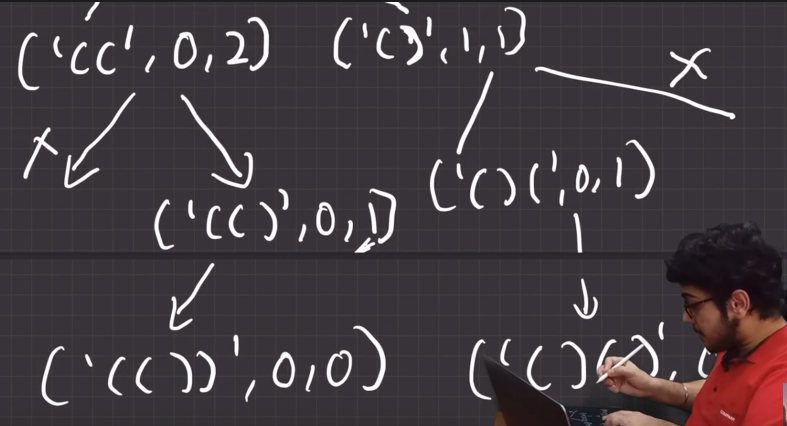 ('((', 0, 2) ('()', 1, 1)
X
X
('()(', 0, 1)
('(()', 0, 1)
('(())', 0, 0) ('()()',